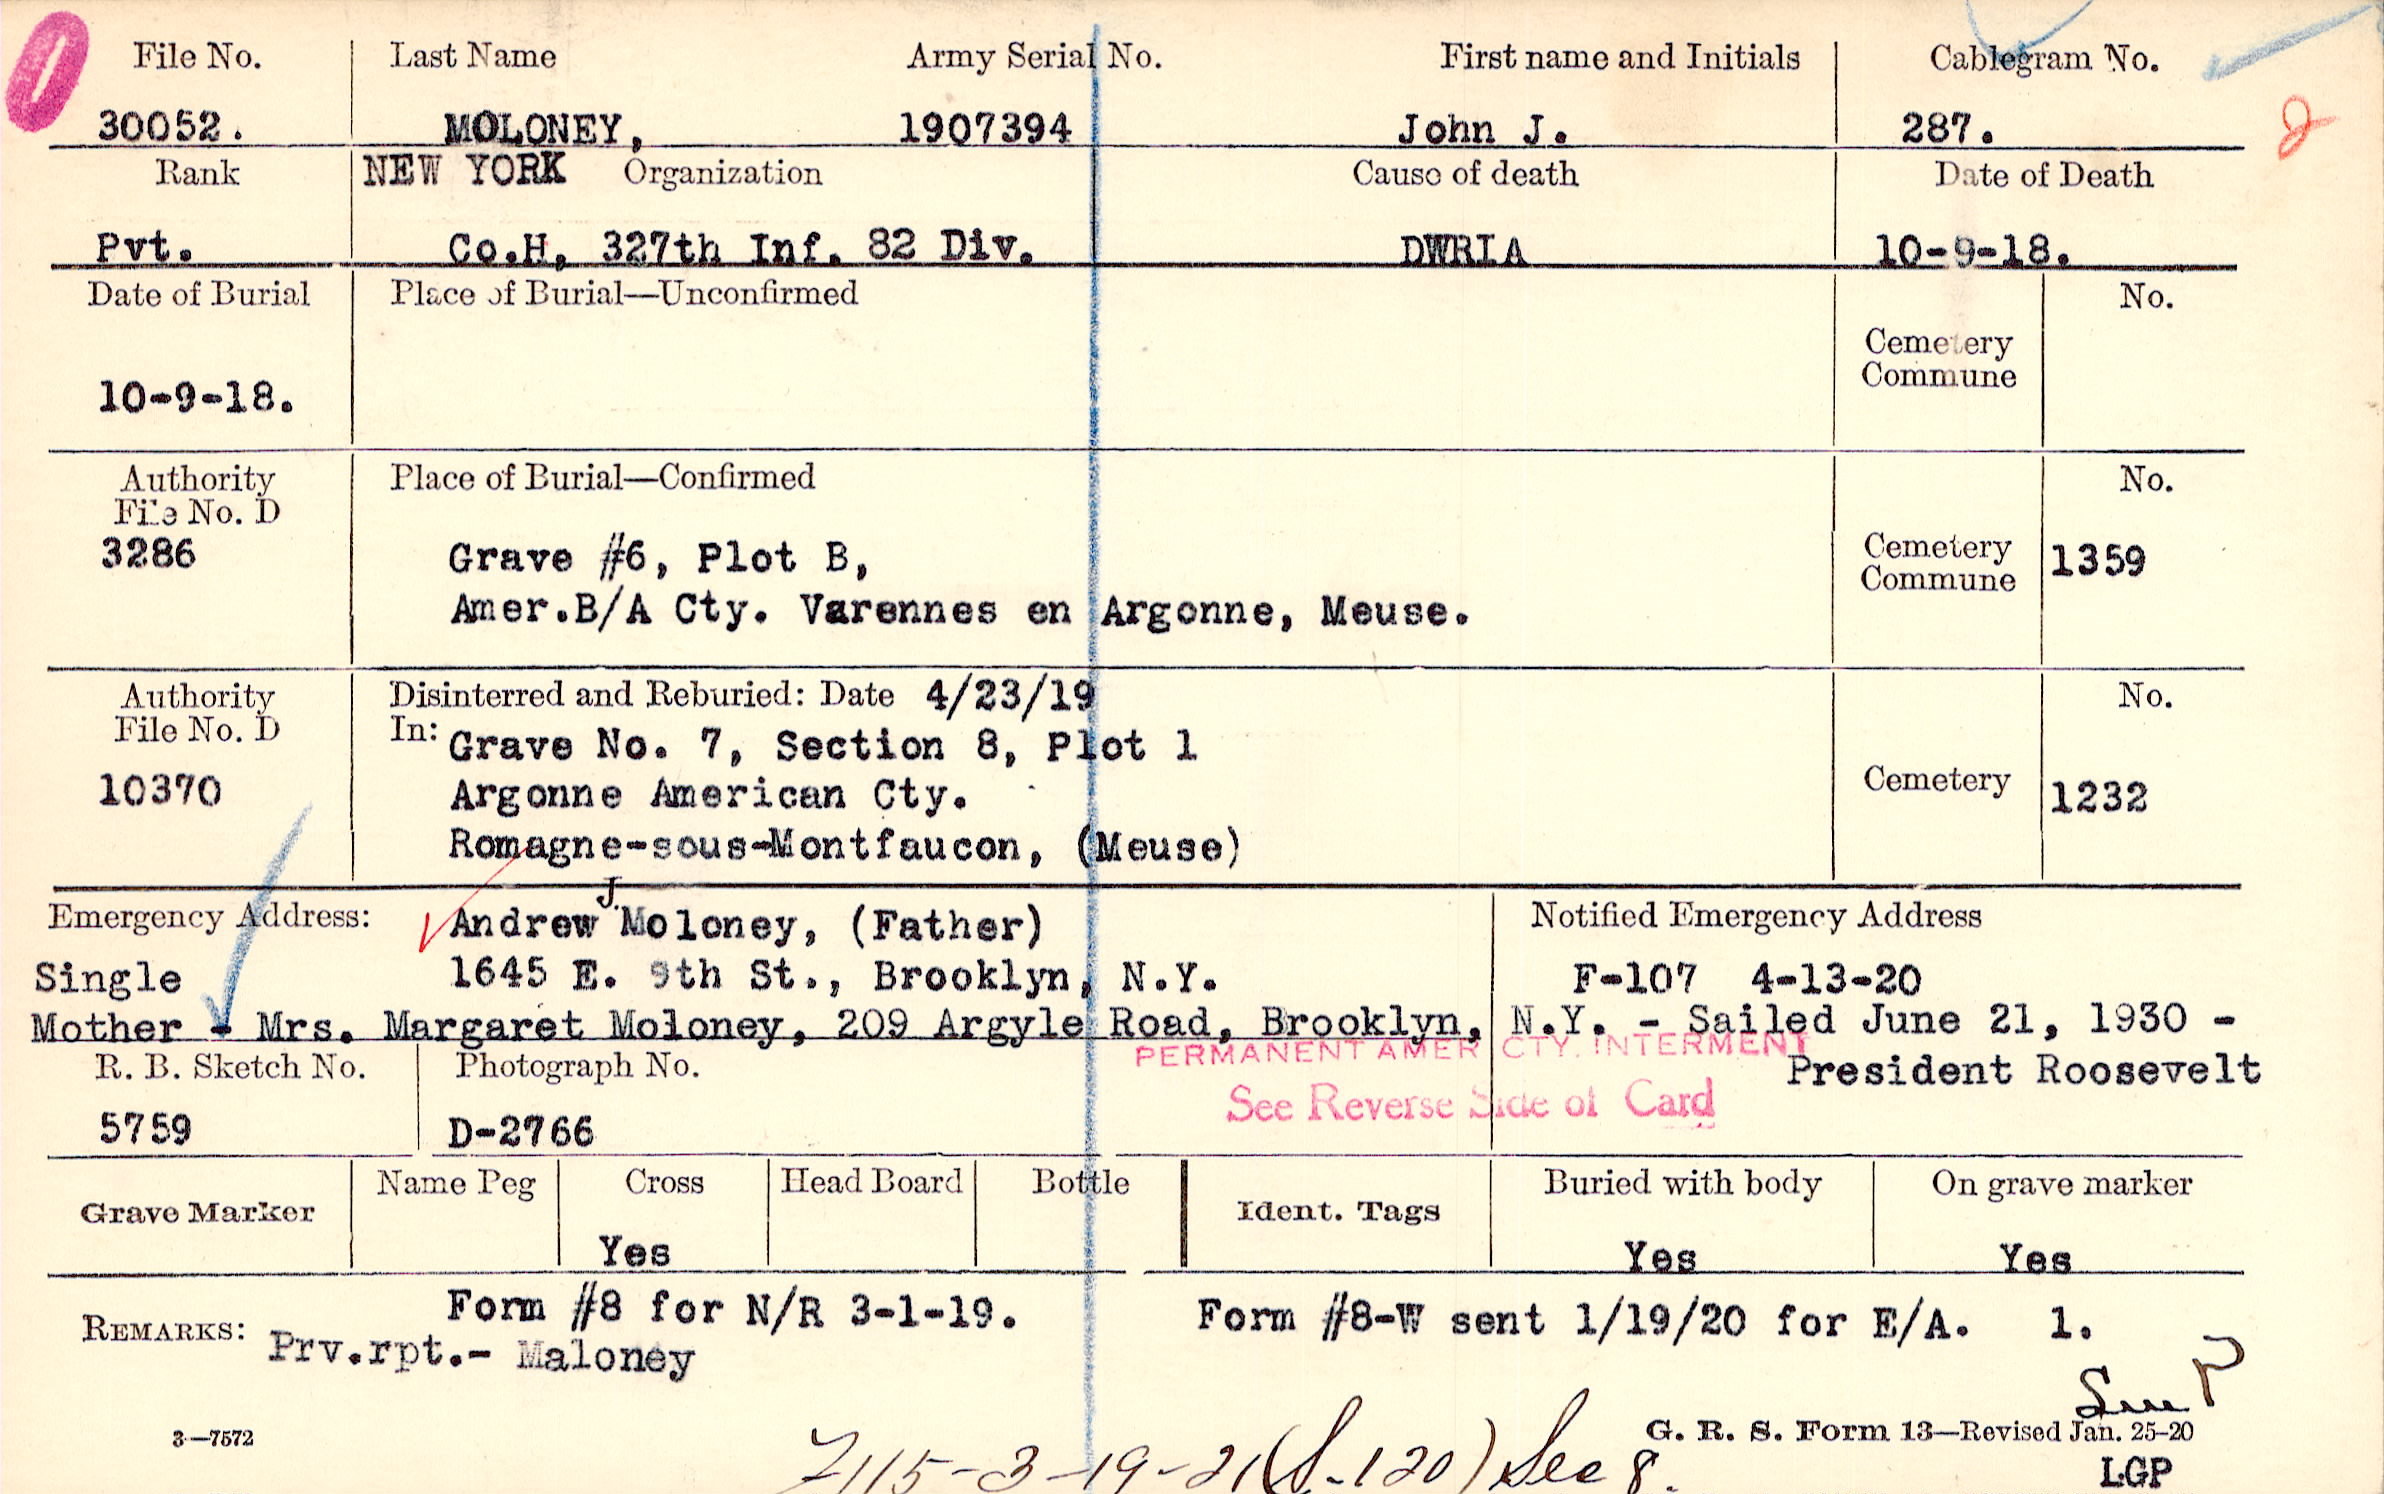 File No. Last Name Army Serial No. First name and Initials Cablegram No.
30052. MOLONEY, 1907394 John J. 287.
Rank NEW YORK Organization Cause of death Date of Death
Pvt. Co.H, 327th Inf. 82 Div. DWRIA 10-9-18.
Date of Burial Place of Burial—Unconfirmed No.
Cemetery
Commune
10-9-18.
Authority Place of Burial—Confirmed No.
File No. D
3286 Grave #6, Plot B, Cemetery 1359
Commune
Amer.B/A Cty. Varennes en Argonne, Meuse.
Authority Disinterred and Reburied: Date 4/23/19 No.
File No. D In: Grave No. 7, Section 8, Plot 1
10370 Argonne American Cty. Cemetery 1232
Romagne-sous-Montfaucon, (Meuse)
Emergency Address: Andrew J. Moloney, (Father) Notified Emergency Address
Single 1645 E. 9th St., Brooklyn, N.Y. F-107 4-13-20
Mother - Mrs. Margaret Moloney, 209 Argyle Road, Brooklyn, N.Y. - Sailed June 21, 1930 -
PERMANENT AMER CTY. INTERMENT
R. B. Sketch No. Photograph No. President Roosevelt
See Reverse Side of Card
5759 D-2766
Grave Marker Name Peg Cross Head Board Bottle Ident. Tags Buried with body On grave marker
Yes Yes Yes
REMARKS: Form #8 for N/R 3-1-19. Form #8-W sent 1/19/20 for E/A. 1.
Prv.rpt.- Maloney
3—7572 G. R. S. Form 13—Revised Jan. 25-20
-3-19-21 (S-120) See 8. LGP